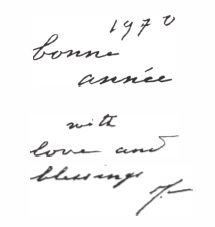 1970
bonne
année
with
love and
blessings